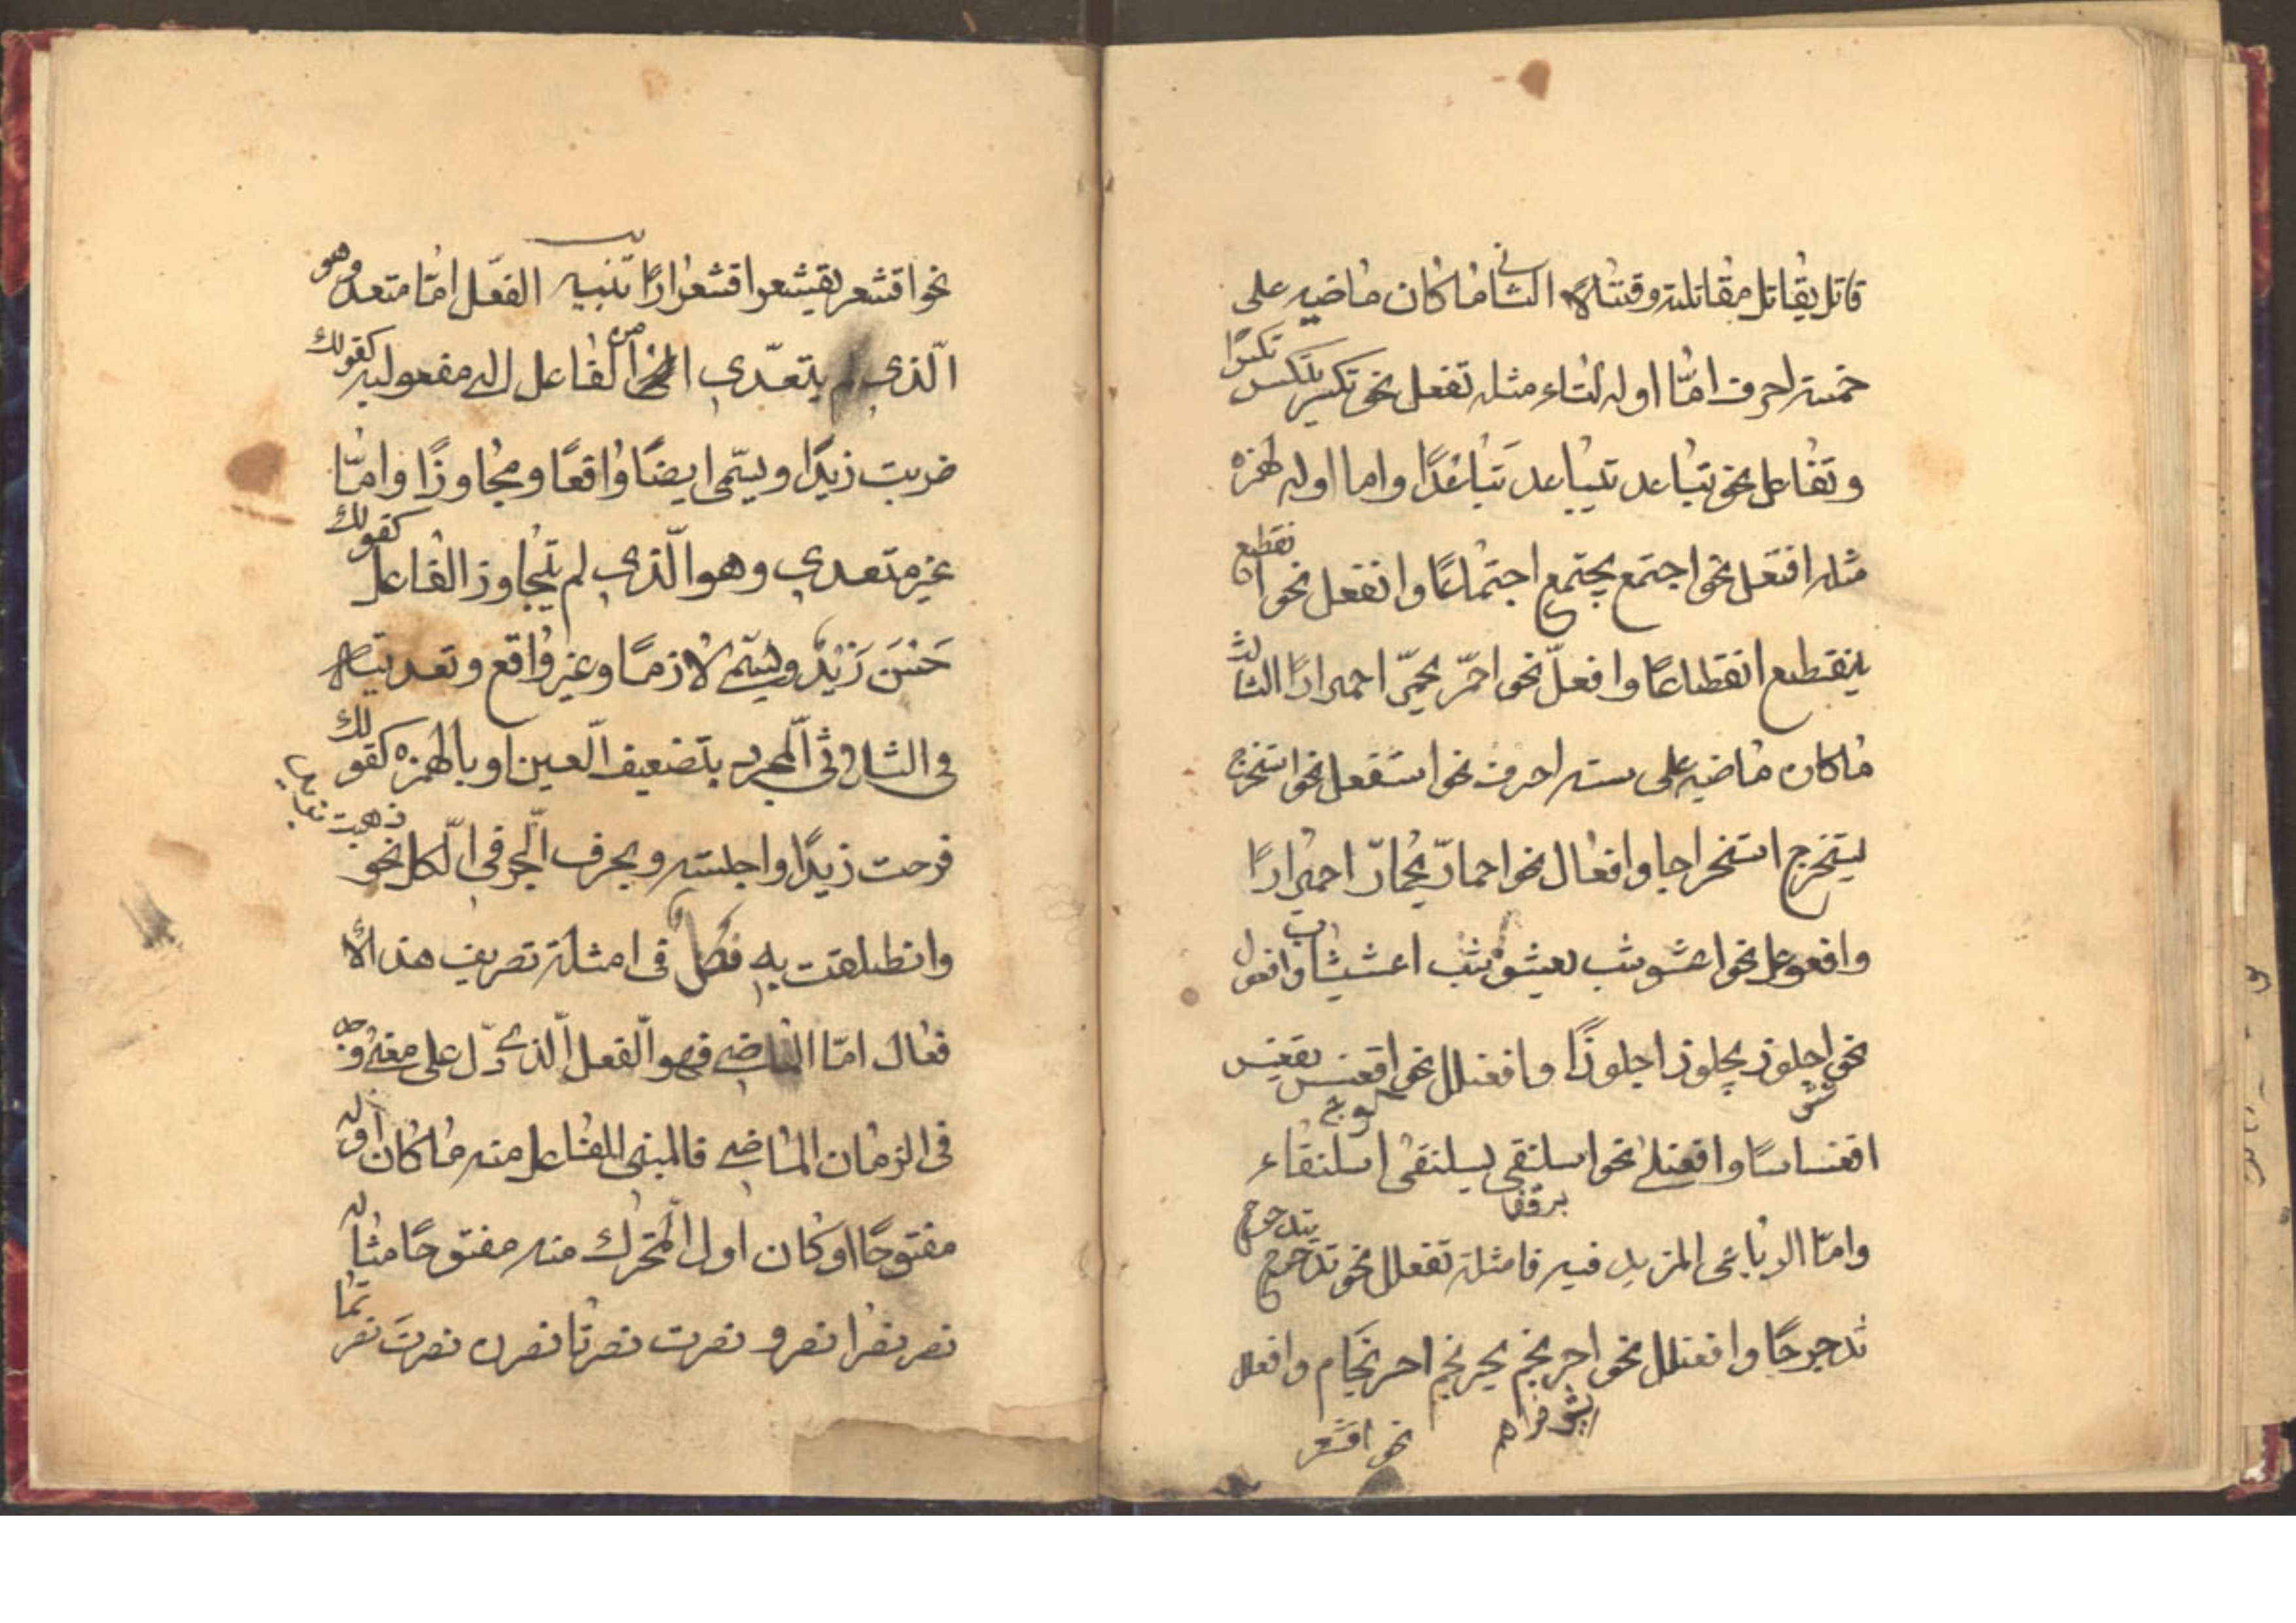 قاتل يقاتل مقاتلة وقتالا الثانى ما كان ماضيه على
خمسة احرف امّا اوله التاء مثله تفعل نحو تكسر يتكسر تكسرا
وتفاعل نحو تباعد يتباعد تباعدًا واما اوله الهمزه
مثله افتعل نحو اجتمع يجتمع اجتماعًا وانفعل نحو انقطع
ينقطع انقطاعًا وافعلّ نحو احمرّ يحمرّ احمرارًا الثالث
ماكان ماضيه على سته احرف نحو استفعل نحو استخرج
يستخرج استخراجا وافعال نحو احمارّ يحمارّ احميرارًا
وافعوعل نحو اعشوشب يعشوشب اعشيشاب وافعول
نحو اجلوذ يجلوذ اجلوذًا وافعنلل نحو اقعنسس يقعنسس
اقعنساسًا وافعنلى نحو اسلنقى يسلنقى اسلنقاء
وامّا الرباعى المزيد فيه فامثلة تفعلل نحو تدحرج يتدحرج
تدحرجًا وافعنلل نحو احرنجم يحرنجم احرنجام وافعلل
نحو اقشعر
نحو اقشعر يقشعر اقشعرارًا تنبيه الفعل امّا متعد وهو
الّذى يتعدّى من الفاعل الى مفعوليه كقولك
ضربت زيدًا ويسمّى ايضًا واقعًا ومجاوزًا وامّا
غير متعدى وهو الّذى لم يتجاوز الفاعل كقولك
حَسُنَ زَيْدٌ ويسمّى لازمًا وغير واقع وتعديته
فى الثلاثى المجرد بتضعيف العين او بالهمزه كقولك
فرحت زيدًا واجلسته وبحرف الجر فى الكل نحو ذهبت
وانطلقت به فصل فى امثلة تصريف هذه الا
فعال امّا الماضى فهو الفعل الّذى دّل على معنى وجد
فى الزمان الماضى فالمبنى للفاعل منه ما كان اوله
مفتوحًا او كان اول المتحرك منه مفتوحًا مثاله
نصر نصرا نصرو نصرت نصرتا نصرن نصرتَ نصرتما